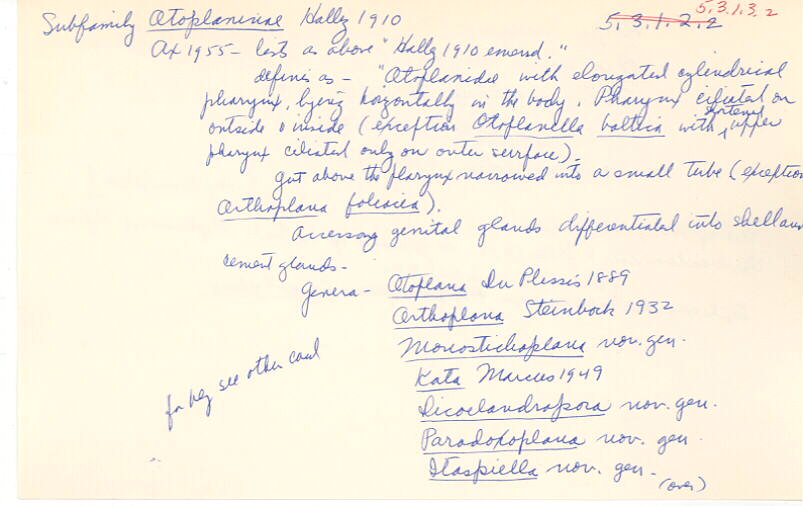 Subfamily Otoplaninae Hallez 1910
5.3.1.2.2
5.3.1.3.2
Ax 1955 - lists as above "Hallez 1910 emend."
defines as - "Otoplanidae with elongated cylindrical
pharynx, lying horizontally in the body. Pharynx ciliated on
outside & inside (exception Otoplanella baltica with upper
pharynx ciliated only on outer surface).
Gut above the pharynx narrowed into a small tube (exception
Orthoplana foliacea).
Accessory genital glands differentiated into shell and
cement glands -
Genera - Otoplana Du Plessis 1889
Orthoplana Steinbock 1932
Monostichoplana nov. gen.
Kata Marcus 1949
Dicoelandropora nov. gen.
Paradoxoplana nov. gen.
Itaspiella nov. gen.
for key see other card
(over)